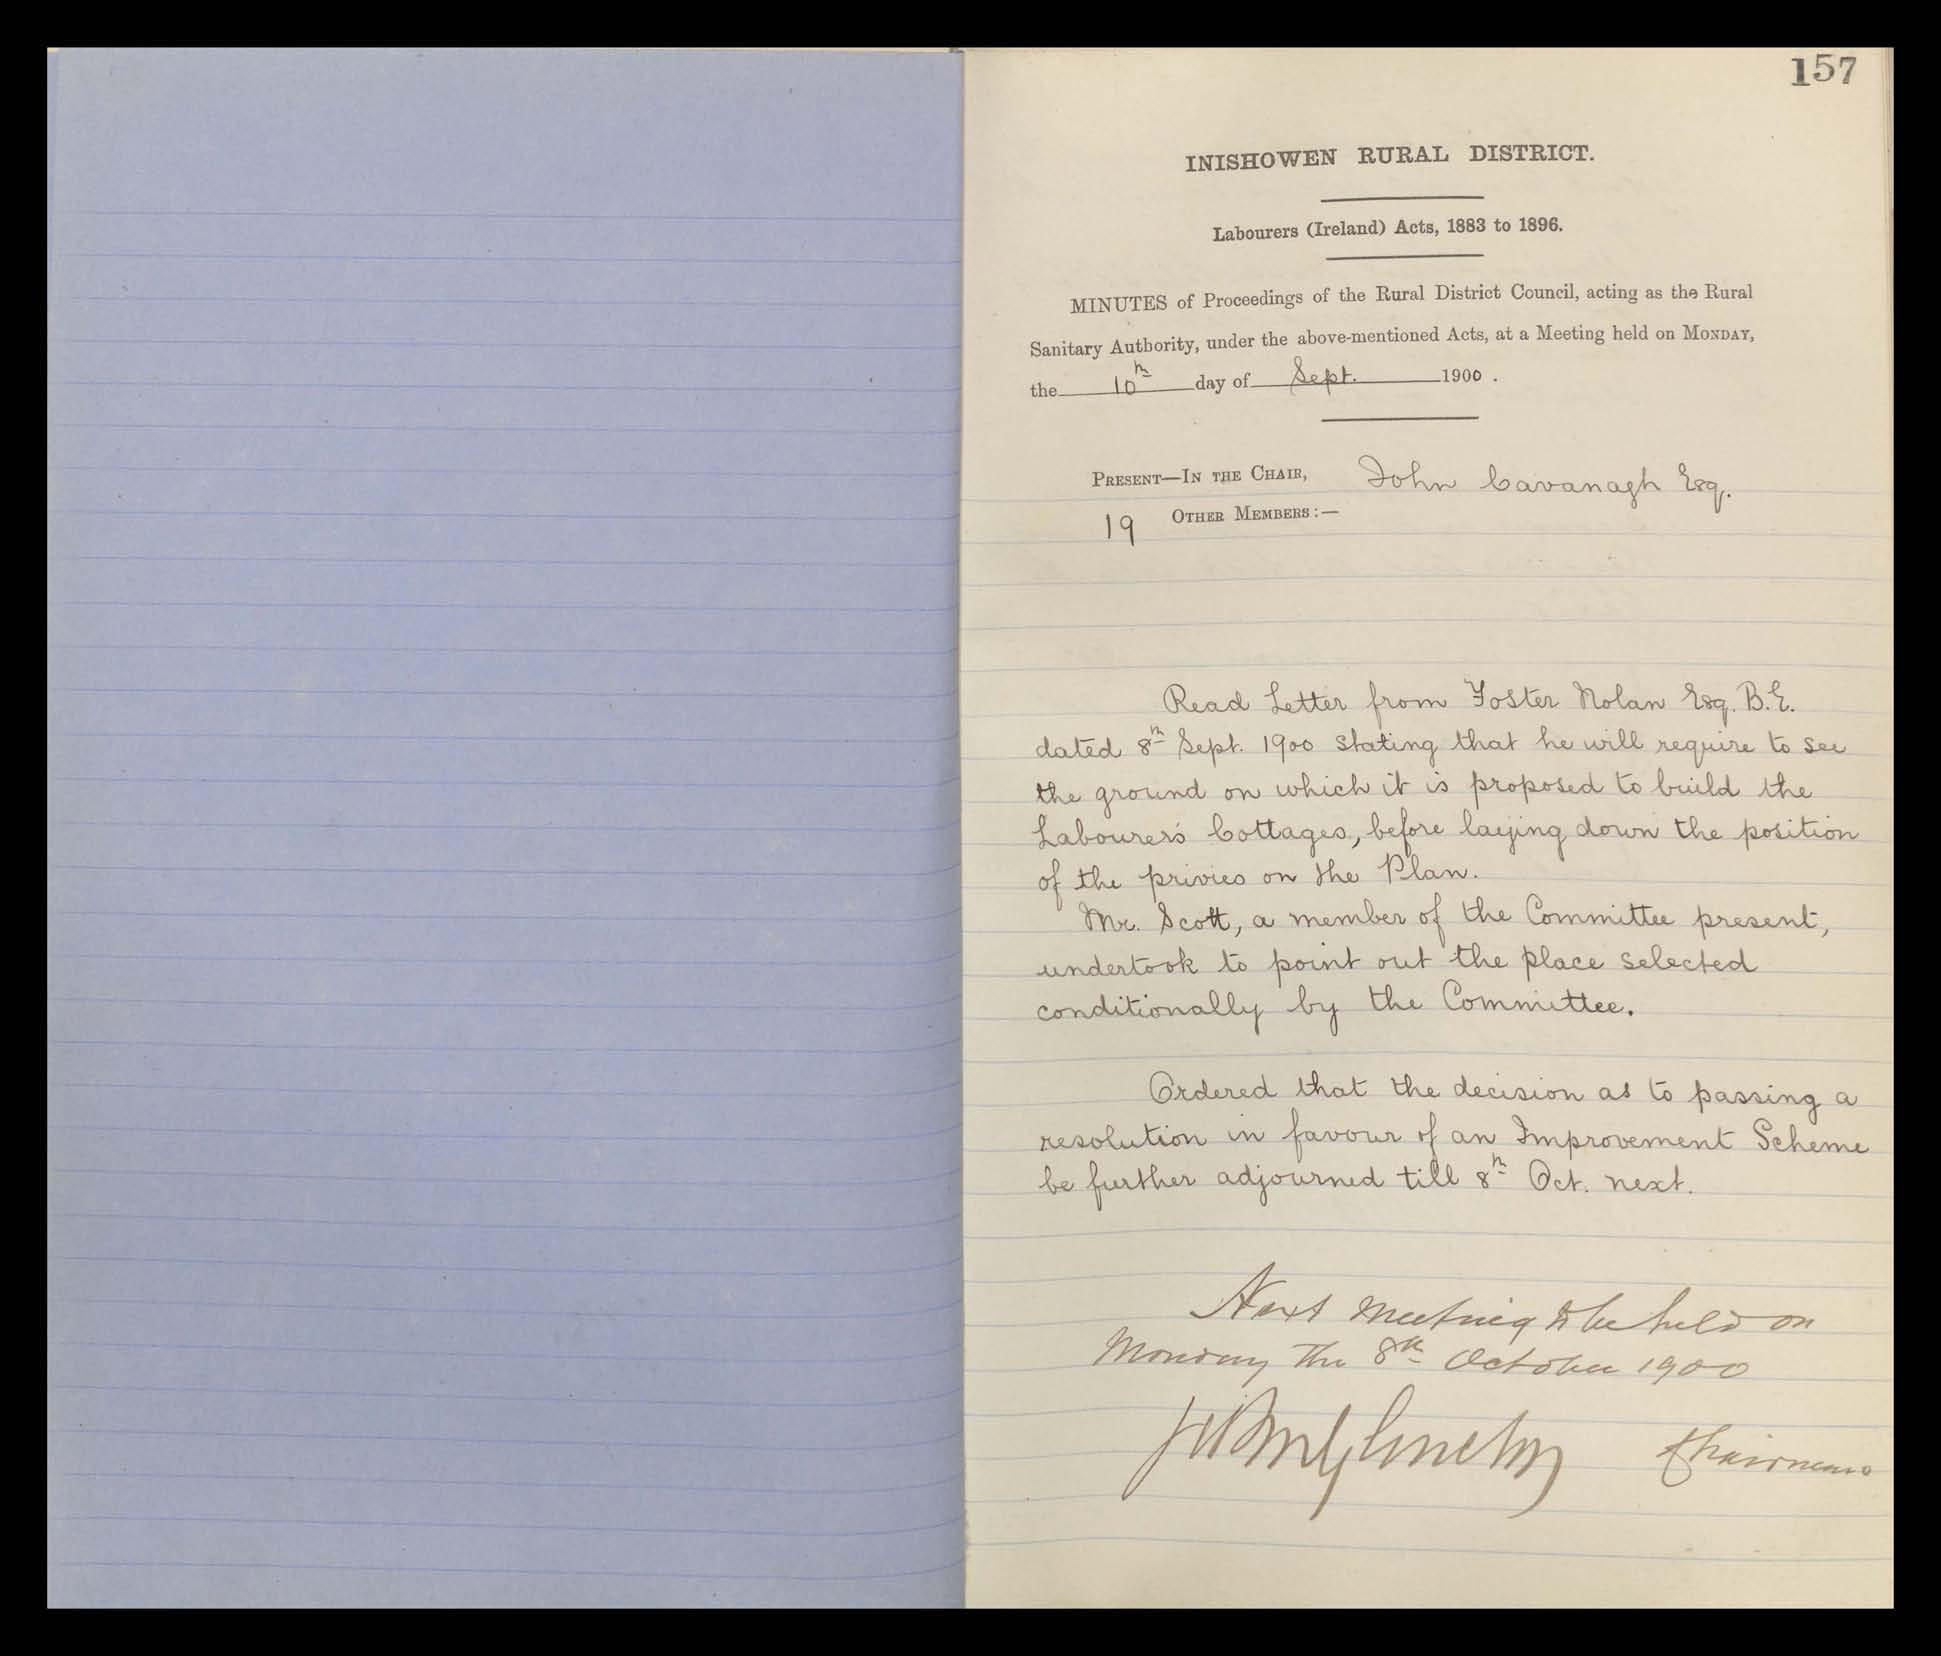 157
INISHOWEN RURAL DISTRICT.
Labourers (Ireland) Acts, 1883 to 1896.
MINUTES of Proceedings of the Rural District Council, acting as the Rural
Sanitary Authority, under the above-mentioned Acts, at a Meeting held on MONDAY,
the 10th day of Sept. 1900.
PRESENT—IN THE CHAIR, John Cavanagh Esq.
19 OTHER MEMBERS:—
Read Letter from Foster Nolan Esq. B.E.
dated 8th Sept. 1900 stating that he will require to see
the ground on which it is proposed to build the
Labourer's Cottages, before laying down the position
of the privies on the Plan.
Mr. Scott, a member of the Committee present,
undertook to point out the place selected
conditionally by the Committee.
Ordered that the decision as to passing a
resolution in favour of an Improvement Scheme
be further adjourned till 8th Oct. next.
Next meeting to be held on
Monday the 8th October 1900
Chairman